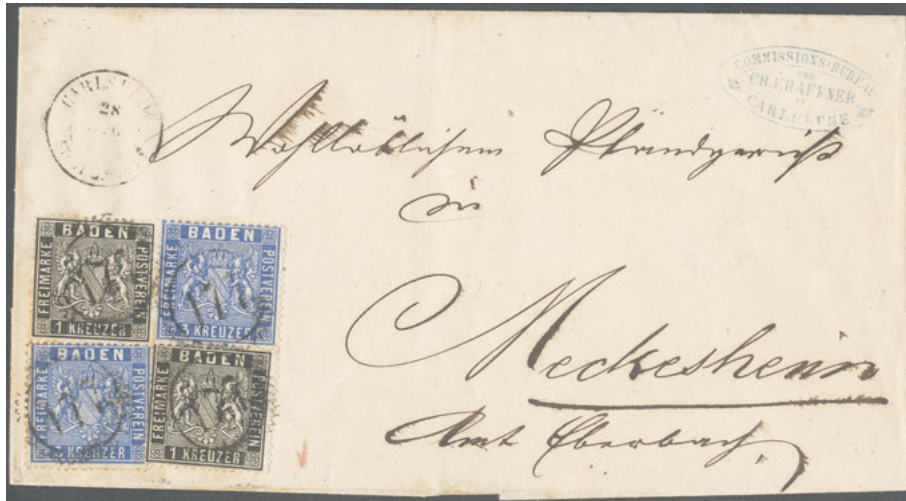 28
COMMISSIONS-BUREAU
von
CH. E. RAFFNER
in
CARLSRUHE
Wohllöblichem Pfandgericht
in
Meckesheim
Amt Eberbach
BADEN
FREIMARKE
POSTVEREIN
1 KREUZER
BADEN
FREIMARKE
POSTVEREIN
3 KREUZER
171
BADEN
FREIMARKE
POSTVEREIN
3 KREUZER
BADEN
FREIMARKE
POSTVEREIN
1 KREUZER